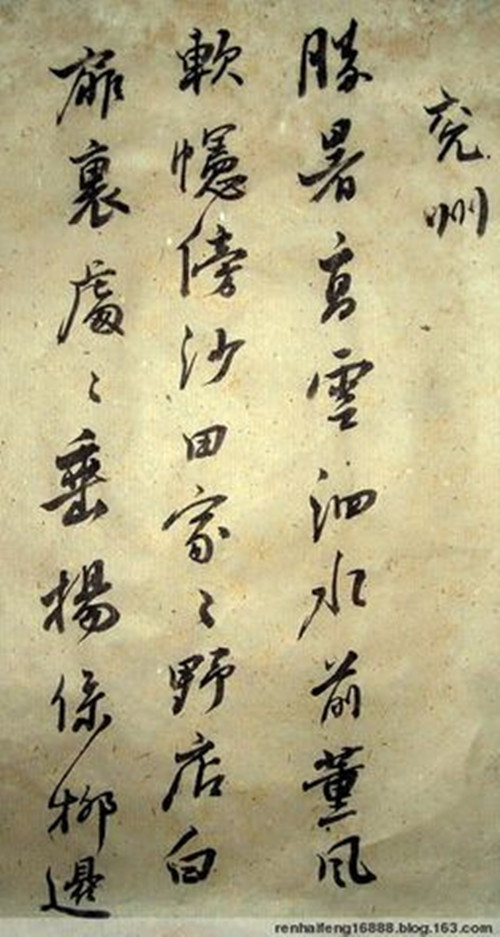 兖州
勝暑高雲泗水前薰風
軟幰傍沙田家々野店白
扉裏處々垂楊係柳邊
renhaifeng16888.blog.163.com